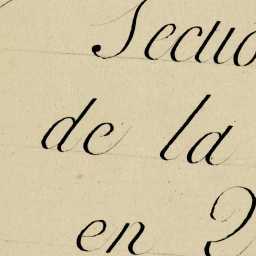 Secuo
de la
en 2